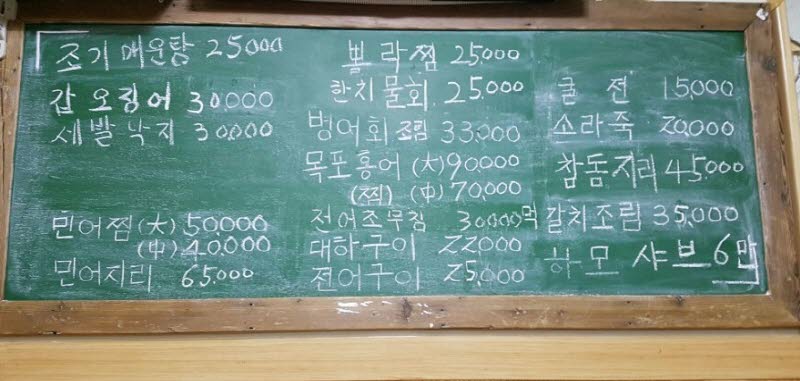 조기매운탕 25000
갑오징어 30.000
세발낙지 30.000
민어찜(大) 50000
(中) 40.000
민어지리 65.000
뽈락찜 25000
한치물회 25.000
병어회 조림 33.000
목포홍어 (大) 90000
(찜) (中) 70.000
전어조무침 30000
대하구이 22000
전어구이 25,000
굴전 15,000
소라죽 20,000
참돔지리 45000
먹갈치조림 35,000
하모 샤브 6만